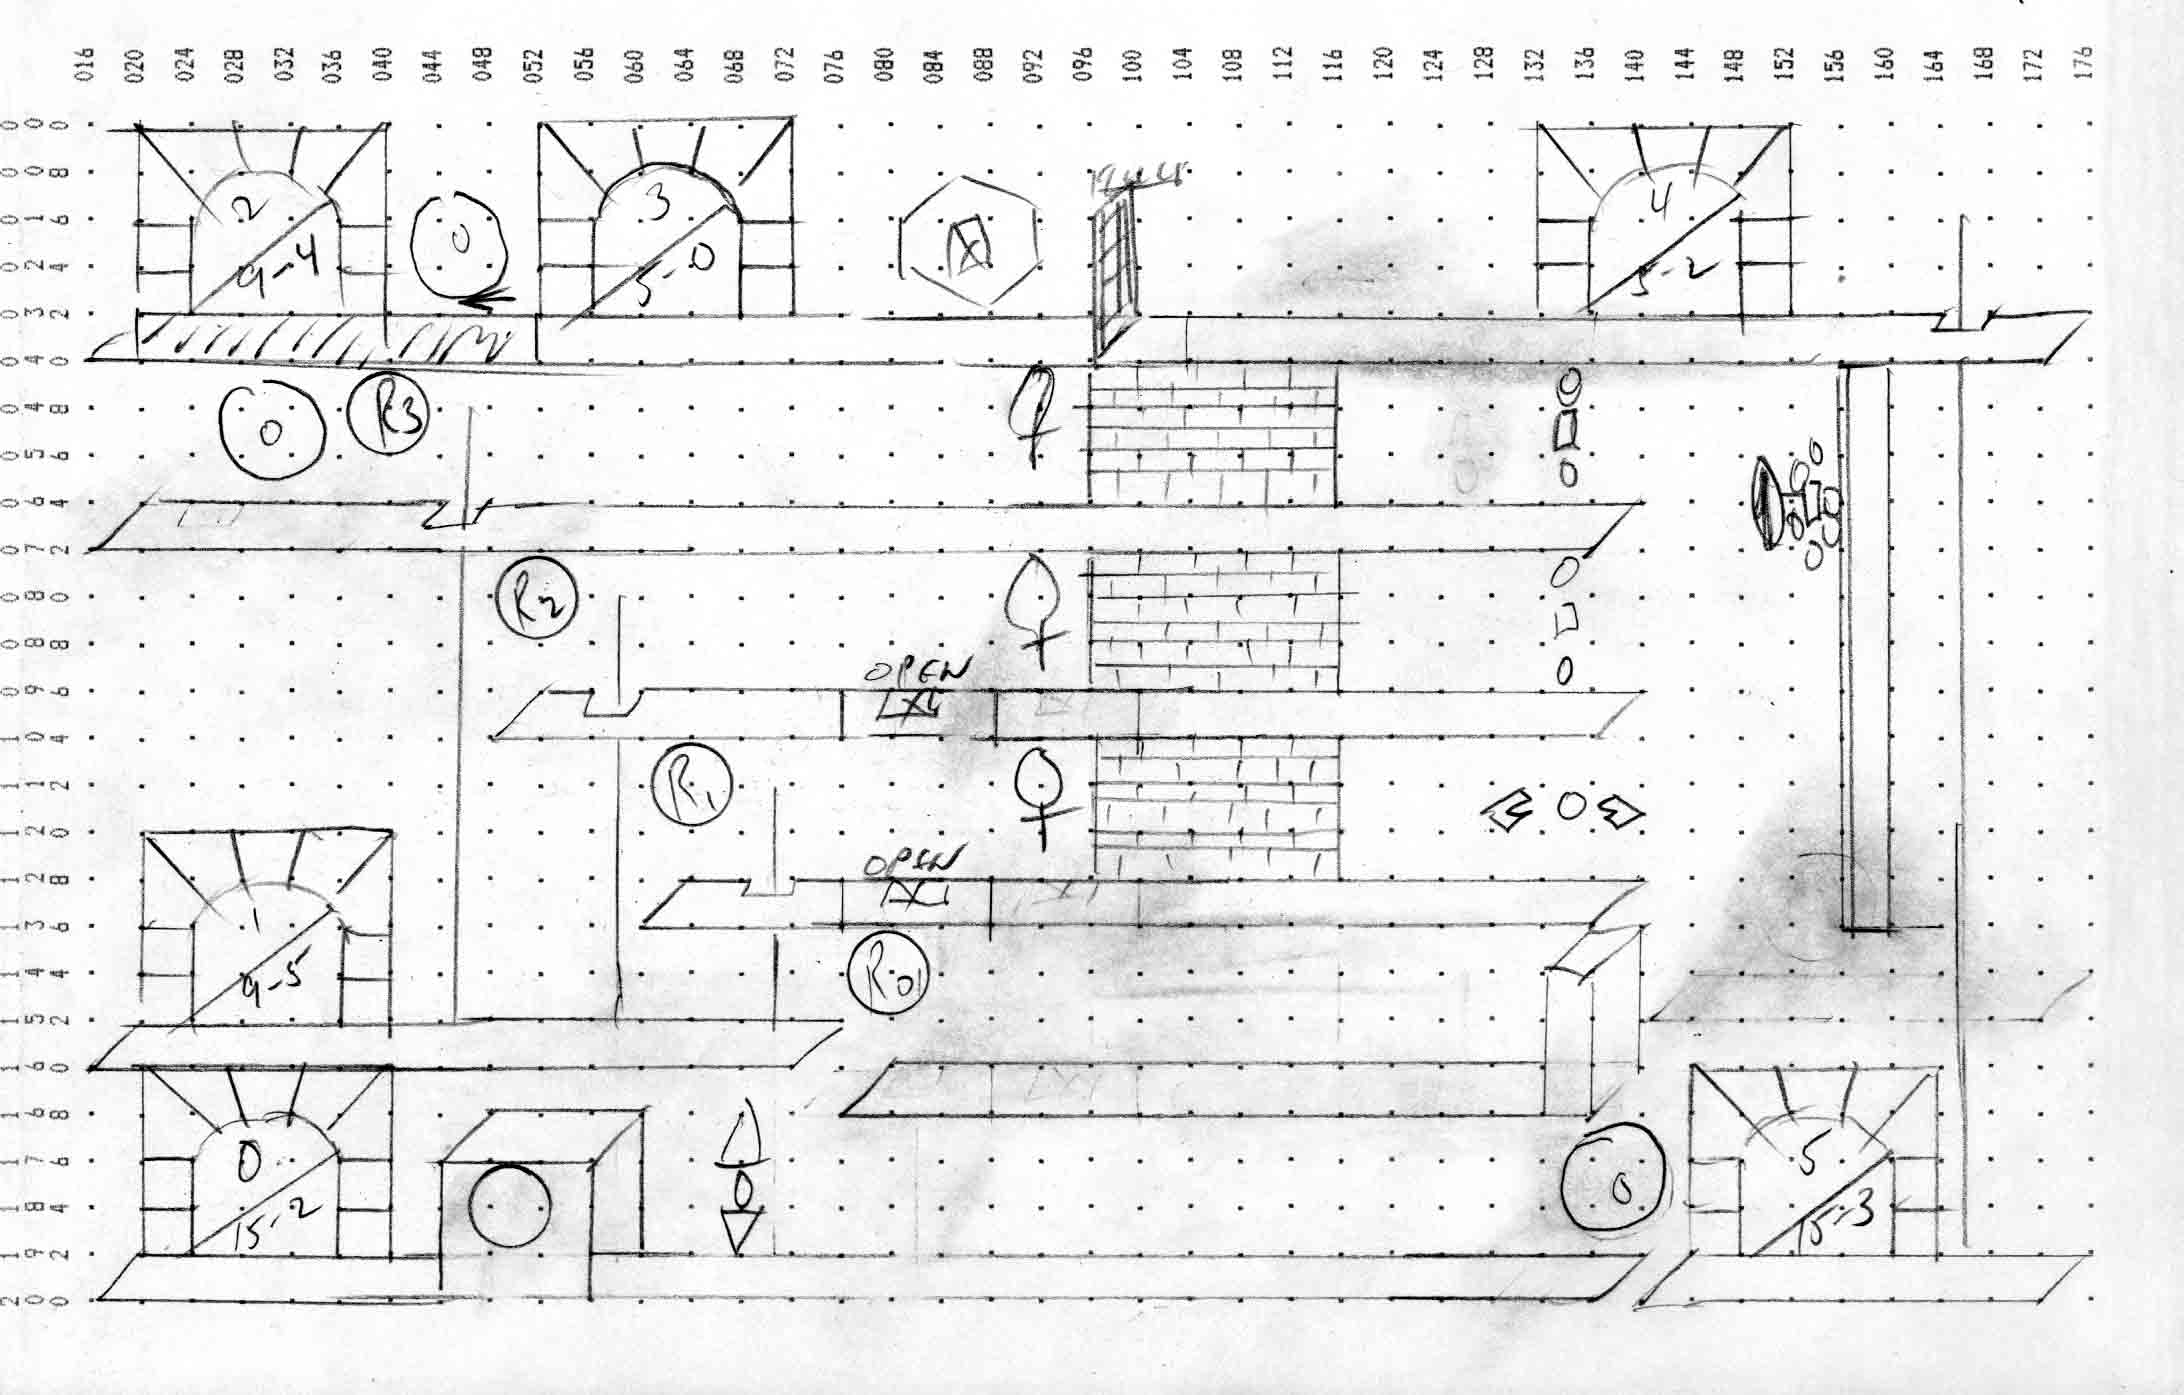 016 020 024 028 032 036 040 044 048 052 056 060 064 068 072 076 080 084 088 092 096 100 104 108 112 116 120 124 128 132 136 140 144 148 152 156 160 164 168 172 176
000
008
016
024
032
040
048
056
064
072
080
088
096
104
112
120
128
136
144
152
160
168
176
184
192
200
2
9-4
0
3
5-0
4
5-2
0
R3
R2
OPEN
R1
OPEN
1
9-5
R0
0
15-2
0
5
15-3